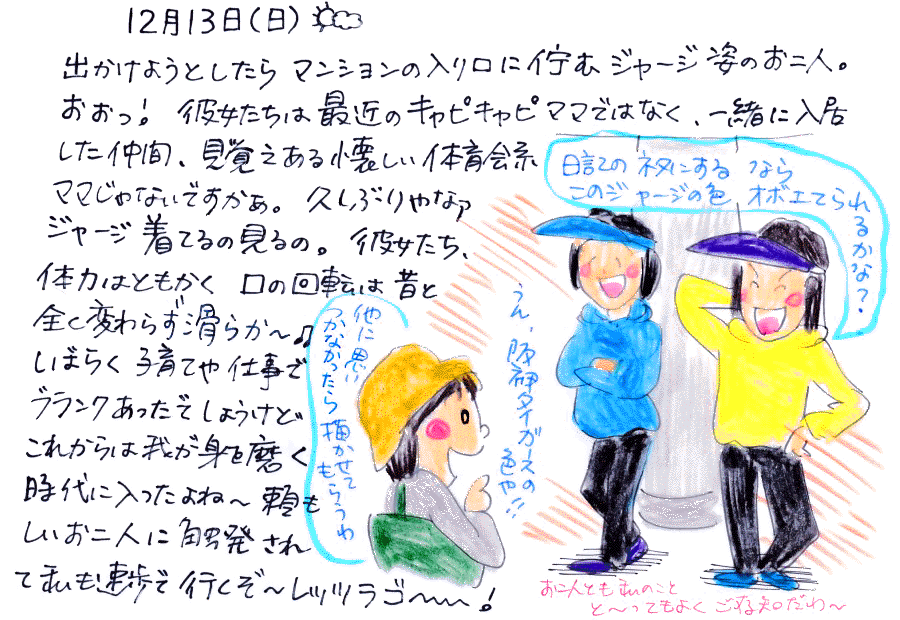 12月13日(日)
出かけようとしたら マンションの入り口に佇む ジャージ姿のお二人。
おおっ! 彼女たちは最近のキャピキャピママではなく、一緒に入居
した仲間、見覚えある懐しい体育会系
ママじゃないですかぁ。 久しぶりやなァ
ジャージ着てるの見るの。 彼女たち、
体力はともかく 口の回転は昔と
全く変わらず滑らか〜♫
しばらく子育てや仕事で
ブランクあったでしょうけど
これからは我が身を磨く
時代に入ったよね〜 頼も
しいお二人に触発され
て私も速歩で行くぞ〜レッツラゴ〜〜〜!
日記のネタにする なら
このジャージの色 オボエてられ
るかな?
うん、阪神タイガースの
色や!!
他に思い
つかなかったら描かせて
もらうわ
お二人とも私のこと
と〜ってもよくご存知だわ〜